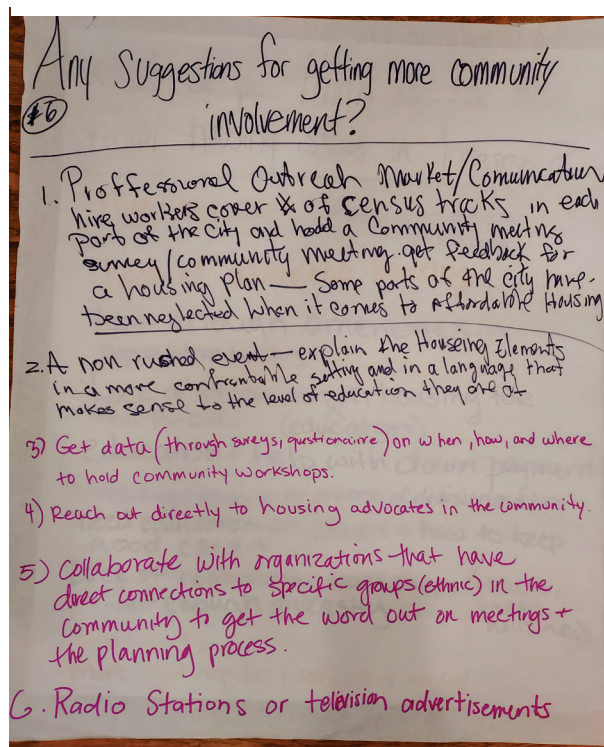 Any Suggestions for getting more community
#6
involvement?
1. Proffessional Outreah Market/Comuncation
hire workers cover of census tracks in each
part of the city and hodd a Community meeting
survey/community meeting. get feedback for
a housing Plan — Some parts of the city have
been neglected when it comes to Affordable Housing
2. A non rushed event — explain the Houseing Elements
in a more confrontable setting and in a language that
makes sense to the level of education they are at
3) Get data (through sureys, qustionairre) on when, how, and where
to hold community workshops.
4) Reach out directly to housing advocates in the community.
5) Collaborate with organizations that have
direct connections to specific groups (ethnic) in the
community to get the word out on meetings +
the planning process.
6. Radio Stations or television advertisements